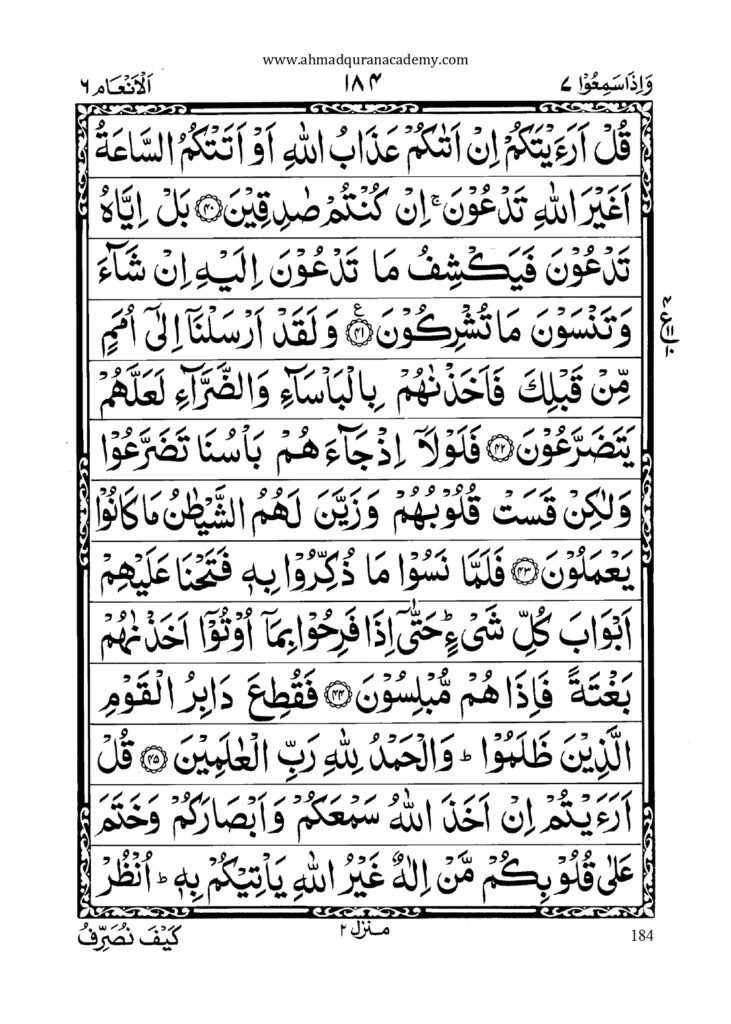 www.ahmadquranacademy.com
وَاِذَاسَمِعُوْا ۷
۱۸۴
اَلْاَنْعَام ۶
قُلْ اَرَءَيْتَكُمْ اِنْ اَتٰىكُمْ عَذَابُ اللّٰهِ اَوْ اَتَتْكُمُ السَّاعَةُ
اَغَيْرَ اللّٰهِ تَدْعُوْنَ ۚ اِنْ كُنْتُمْ صٰدِقِيْنَ ۝۴۰ بَلْ اِيَّاهُ
تَدْعُوْنَ فَيَكْشِفُ مَا تَدْعُوْنَ اِلَيْهِ اِنْ شَآءَ
وَتَنْسَوْنَ مَا تُشْرِكُوْنَ ۝۴۱ ع وَلَقَدْ اَرْسَلْنَاۤ اِلٰۤى اُمَمٍ
۴
ع
۱۱
۱۰
مِّنْ قَبْلِكَ فَاَخَذْنٰهُمْ بِالْبَاْسَآءِ وَالضَّرَّآءِ لَعَلَّهُمْ
يَتَضَرَّعُوْنَ ۝۴۲ فَلَوْلَاۤ اِذْ جَآءَهُمْ بَاْسُنَا تَضَرَّعُوْا
وَلٰكِنْ قَسَتْ قُلُوْبُهُمْ وَزَيَّنَ لَهُمُ الشَّيْطٰنُ مَا كَانُوْا
يَعْمَلُوْنَ ۝۴۳ فَلَمَّا نَسُوْا مَا ذُكِّرُوْا بِهٖ فَتَحْنَا عَلَيْهِمْ
اَبْوَابَ كُلِّ شَيْءٍ ؕ حَتّٰۤى اِذَا فَرِحُوْا بِمَاۤ اُوْتُوْۤا اَخَذْنٰهُمْ
بَغْتَةً فَاِذَا هُمْ مُّبْلِسُوْنَ ۝۴۴ فَقُطِعَ دَابِرُ الْقَوْمِ
الَّذِيْنَ ظَلَمُوْا ؕ وَالْحَمْدُ لِلّٰهِ رَبِّ الْعٰلَمِيْنَ ۝۴۵ قُلْ
اَرَءَيْتُمْ اِنْ اَخَذَ اللّٰهُ سَمْعَكُمْ وَاَبْصَارَكُمْ وَخَتَمَ
عَلٰى قُلُوْبِكُمْ مَّنْ اِلٰهٌ غَيْرُ اللّٰهِ يَاْتِيْكُمْ بِهٖ ؕ اُنْظُرْ
184
منزل ۲
كَيْفَ نُصَرِّفُ